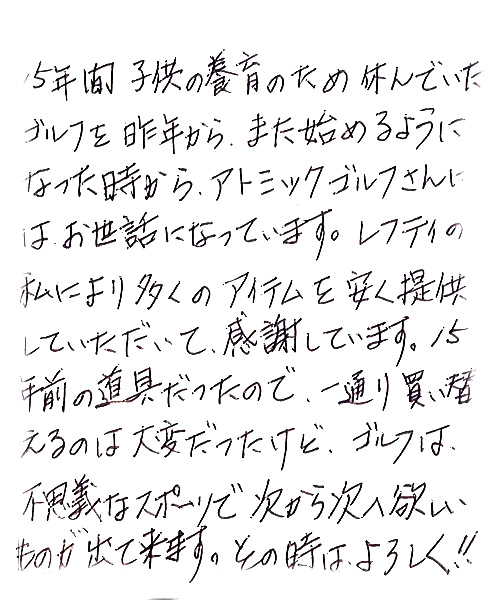 15年間 子供の養育のため 休んでいた
ゴルフを 昨年から、また始めるように
なった時から、アトミックゴルフさんに
は、お世話になっています。レフティの
私により多くの アイテムを 安く提供
していただいて、感謝しています。15
年前の道具だったので、一通り買い替
えるのは大変だったけど、ゴルフは、
不思義なスポーツで 次から次へ欲しい
ものが出て来ます。その時は、よろしく!!